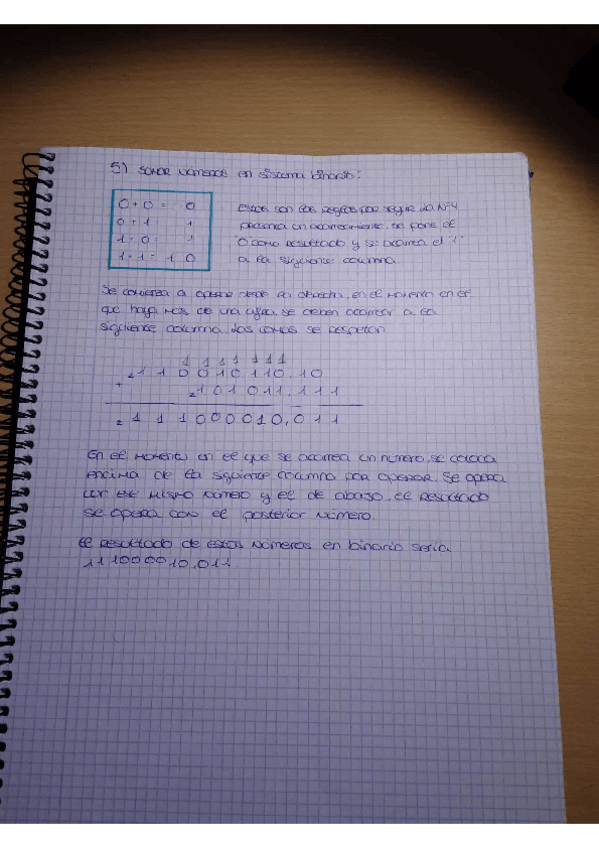 5) SUMAR NÚMEROS EN SISTEMA BINARIO:
0 + 0 = 0
0 + 1 1
1 + 0 : 1
1 + 1 = 1 0
ESTAS SON LAS REGLAS POR SEGUIR. LA Nº4
PRESENTA UN ACARREAMIENTO, SE PONE DE
"0" COMO RESULTADO Y SE ACARREA EL "1"
A LA SIGUIENTE COLUMNA.
SE COMIENZA A OPERAR DESDE LA DERECHA, EN EL MOMENTO EN EL
QUE HAYA MÁS DE UNA CIFRA, SE DEBEN ACARREAR A LA
SIGUIENTE COLUMNA. LAS COMAS SE RESPETAN
1 1 1 1 1 1 1
2 1 1 0 0 1 0 1 1 0 . 1 0
+
2 1 0 1 0 1 1 . 1 1 1
2 1 1 1 0 0 0 0 1 0 , 0 1 1
EN EL MOMENTO EN EL QUE SE ACARREA UN NÚMERO, SE COLOCA
ENCIMA DE LA SIGUIENTE COLUMNA POR OPERAR. SE OPERA
CON ESE MISMO NÚMERO Y EL DE ABAJO, EL RESULTADO
SE OPERA CON EL POSTERIOR NÚMERO.
EL RESULTADO DE ESTOS NÚMEROS EN BINARIO SERÍA
111000010,011.